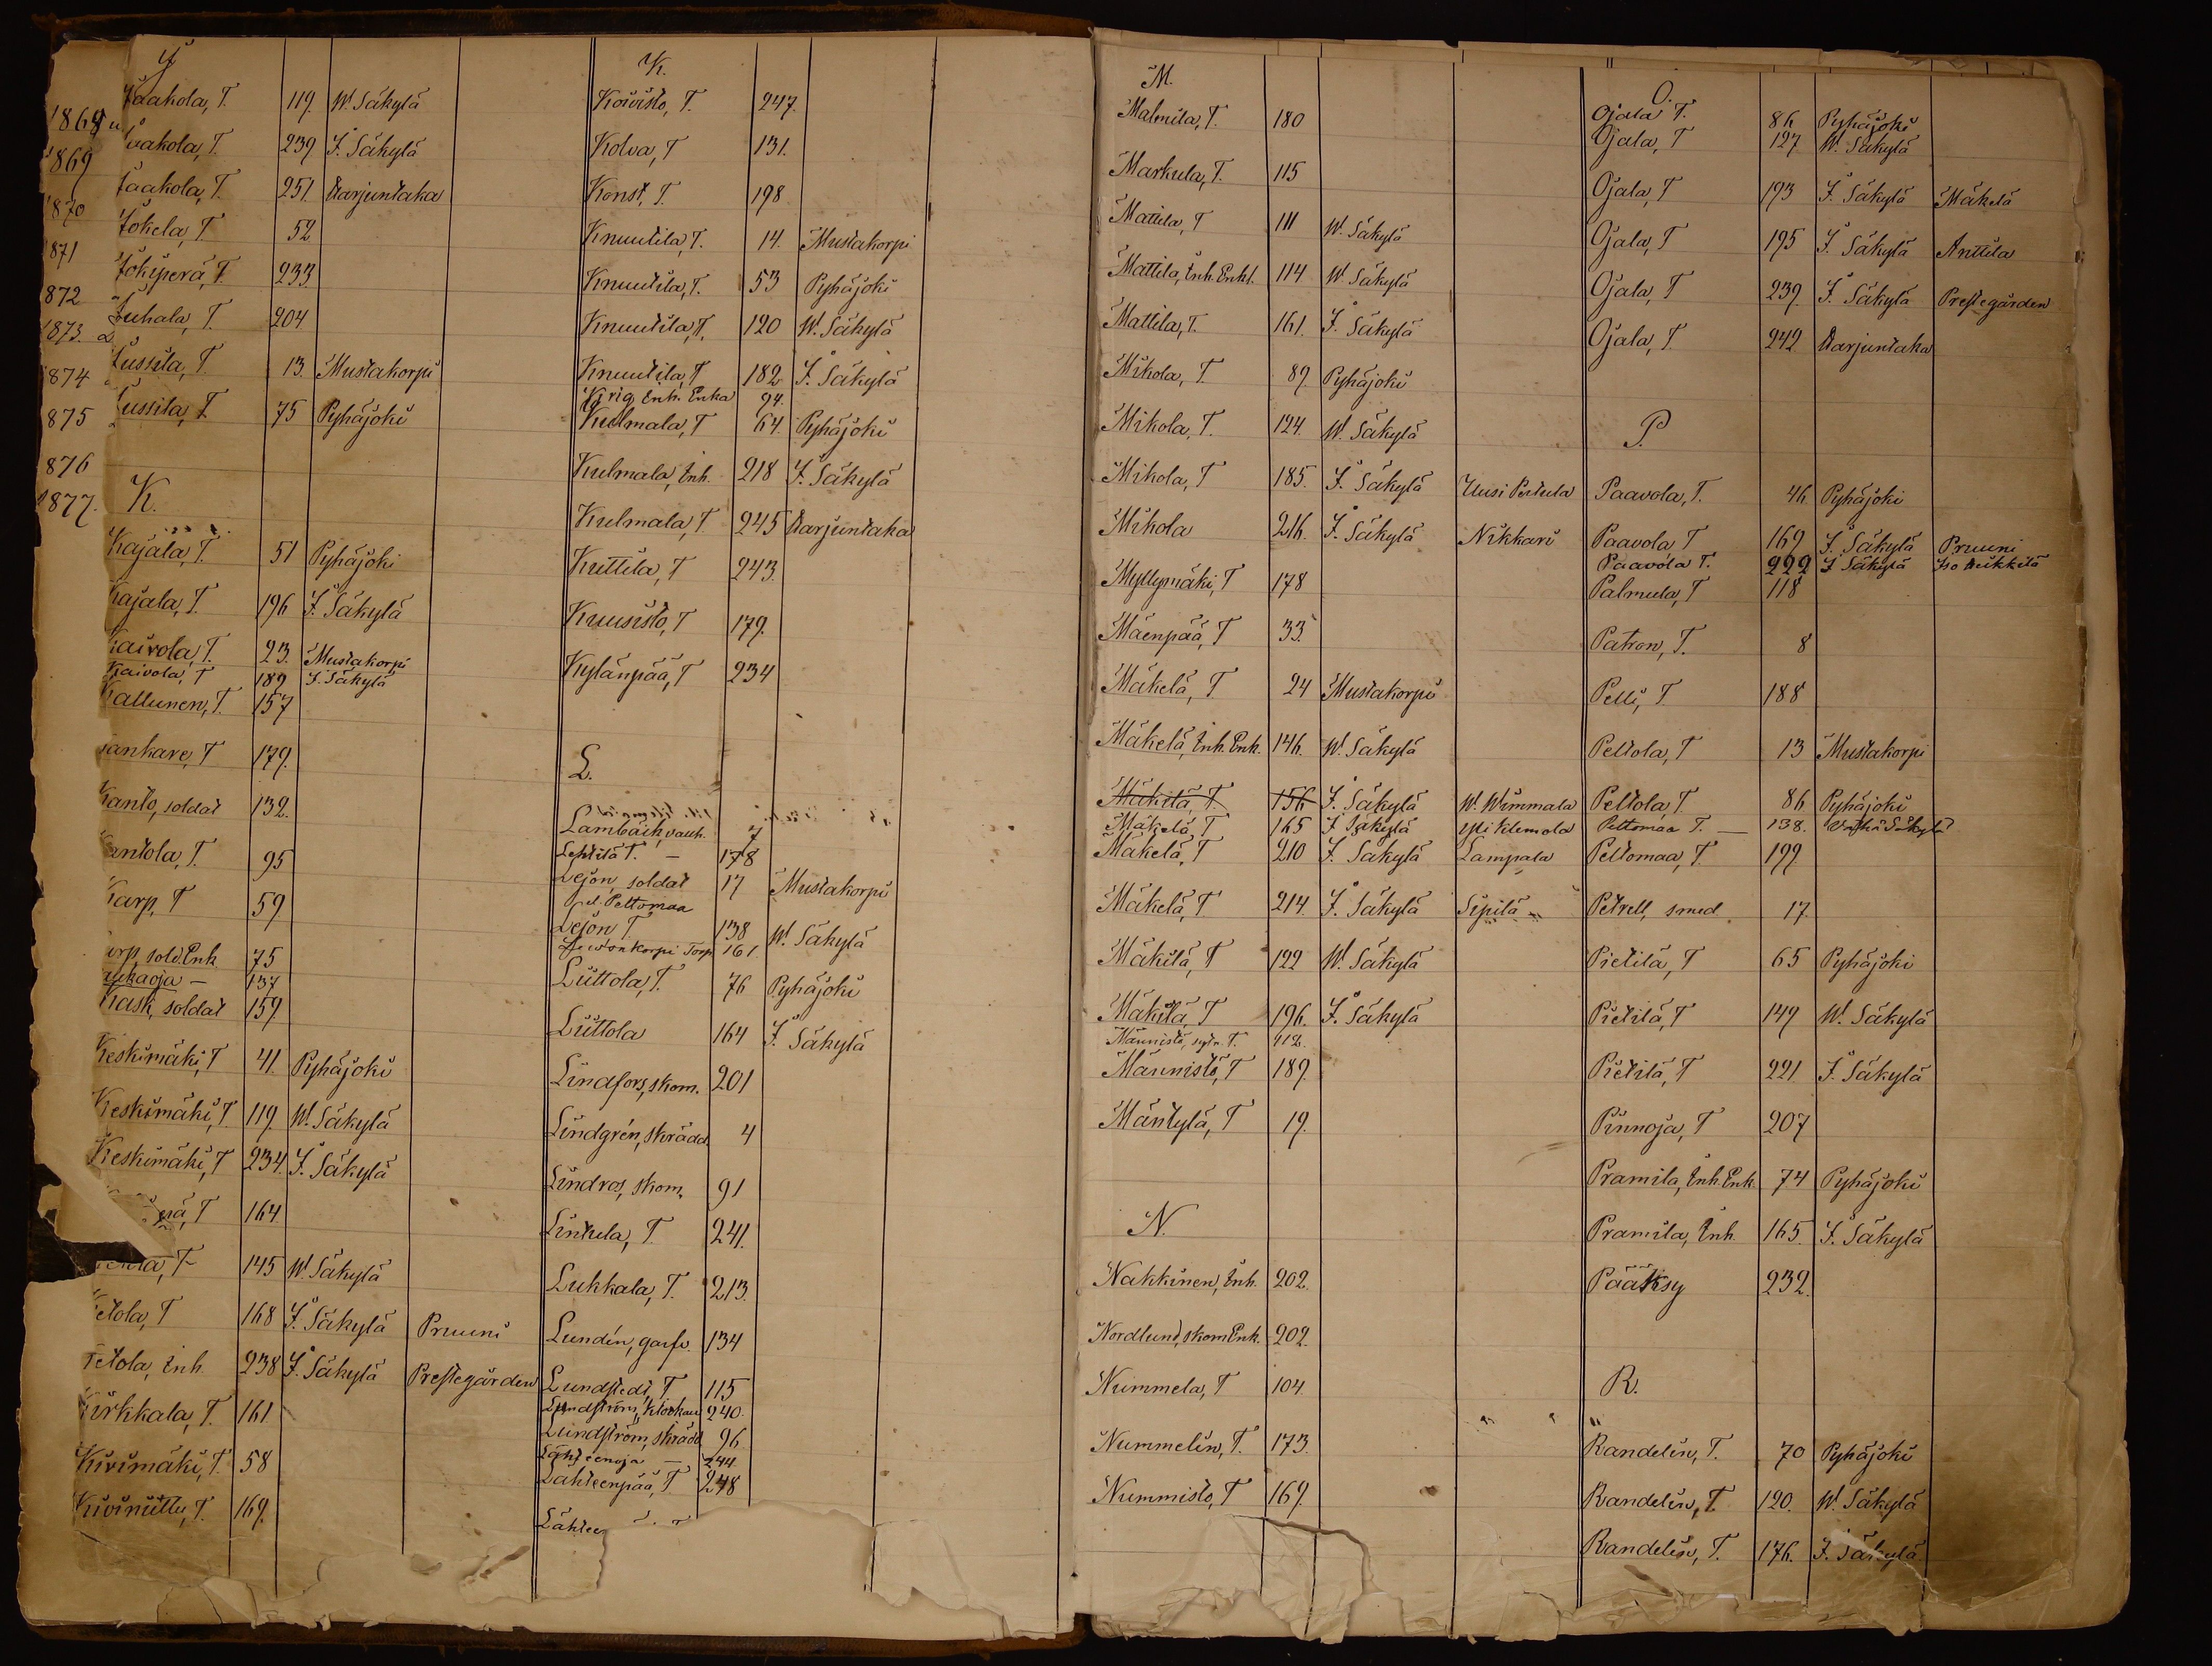 J
Jaakola, T. 119. W. Säkylä
Jaakola, T. 239 I. Säkylä
Jaakola, T. 251. Karjuntaka
Jokela, T 52
Jokiperä, T. 233
Juhala, T. 204
Jussila, T 13. Mustakorpi
Jussila, T. 75 Pyhäjoki
1869
1870
1871
1872
1873.
1874
1875
1876
1877.
K.
Kajala, T. 51 Pyhäjoki
Kajala, T. 196 I. Säkylä
Kaivola, T. 23. Mustakorpi
Kaivola, T 189 I. Säkylä
Kallunen, T. 157
Kankare, T 179.
Kanto, soldat 132.
Kantola, T. 95
Karp, T 59
Karp, sold. Enk. 75
137
Kask, soldat 159
Keskimäki, T 41. Pyhäjoki
Keskimäki, T. 119. W. Säkylä
Keskimäki, T 234. I. Säkylä
T 164
T 145 W. Säkylä
Ketola, T 168 I. Säkylä Pruuni
Ketola, Inh. 238 I. Säkylä Prestegården
Kirkkala, T. 161.
Kivimäki, T. 58
Kiviniittu, T. 169.
K.
Koivisto, T. 247.
Kolva, T 131.
Konst, T. 198.
Knuutila, T. 14. Mustakorpi
Knuutila, T. 53 Pyhäjoki
Knuutila, T. 120 W. Säkylä
Knuutila, T 182 I. Säkylä
Krig, Inh. Enka 94.
Kulmala, T 64. Pyhäjoki
Kulmala, Inh. 218 I. Säkylä
Kulmala, T. 245 Karjuntaka
Kuttila, T 243.
Kuusisto, T 179.
Kylänpää, T 234
L.
Lambäck, vakh. 7
Lehtilä T. — 178
Lejon, soldat 17 Mustakorpi
Peltomaa
Lejon T 138 W. Säkylä
Torp 161.
Liittola, T. 76 Pyhäjoki
Liittola 164 I. Säkylä
Lindfors, skom. 201
Lindgrén, skrädd. 4
Lindros, skom. 91
Lintula, T. 241.
Lukkala, T. 213.
Lundén, garfv. 134
Lundstedt, T 115
Lundström, klockare 240.
Lundström, skrädd 96
Lähteenoja — 244
Lähteenpää, T 248
M.
Malmila, T. 180
Markula, T. 115
Mattila, T 111 W. Säkylä
Mattila, Inh. Enkl. 114 W. Säkylä
Mattila, T. 161. I. Säkylä
Mikola, T. 89. Pyhäjoki
Mikola, T. 124. W. Säkylä
Mikola, T 185. I. Säkylä Uusi Pertula
Mikola 216. I. Säkylä Nikkari
Myllymäki, T 178
Mäenpää, T 33.
Mäkelä, T 24 Mustakorpi
Mäkelä, Inh. Enk. 146. W. Säkylä
Mäkelä, T. 156 I. Säkylä W. Wimmala
Mäkelä, T 165 I Säkylä Yli Klemola
Mäkelä, T 210 I. Säkylä Lampala
Mäkelä, T 214. I. Säkylä Sipilä
Mäkilä, T 122 W. Säkylä
Mäkilä, T 196. I. Säkylä
Männistö, T. 112.
Männistö, T 189.
Mäntylä, T 19.
N.
Nakkinen, Inh. 202.
Nordlund, skom Enk. 202.
Nummela, T 104.
Nummelin, T. 173.
Nummisto, T 169.
O.
Ojala T. 86 Pyhäjoki
Ojala, T 127 W. Säkylä
Ojala, T 193 I. Säkylä Mäkelä
Ojala, T 195 I. Säkylä Anttila
Ojala, T 239. I. Säkylä Prestegården
Ojala, T. 242. Karjuntaka
P.
Paavola, T. 46 Pyhäjoki
Paavola, T 169 I. Säkylä Pruuni
Paavola T. 222 I Säkylä Iso Heikkilä
Palmula, T 118
Patron, T. 8
Pelli, T 188
Peltola, T 13 Mustakorpi
Peltola, T. 86 Pyhäjoki
Peltomaa T. — 138. Vähä Säkylä
Peltomaa, T. 199
Petrell, smed. 17.
Pietilä, T 65 Pyhäjoki
Pietilä, T 149 W. Säkylä
Pietilä, T 221 I. Säkylä
Pinnoja, T 207
Pramila, Inh. Enk. 74 Pyhäjoki
Pramila, Inh. 165. I. Säkylä
Pääksy 232.
R.
Randelin, T. 70 Pyhäjoki
Randelin, T. 120. W. Säkylä
Randelin, T. 176. I. Säkylä